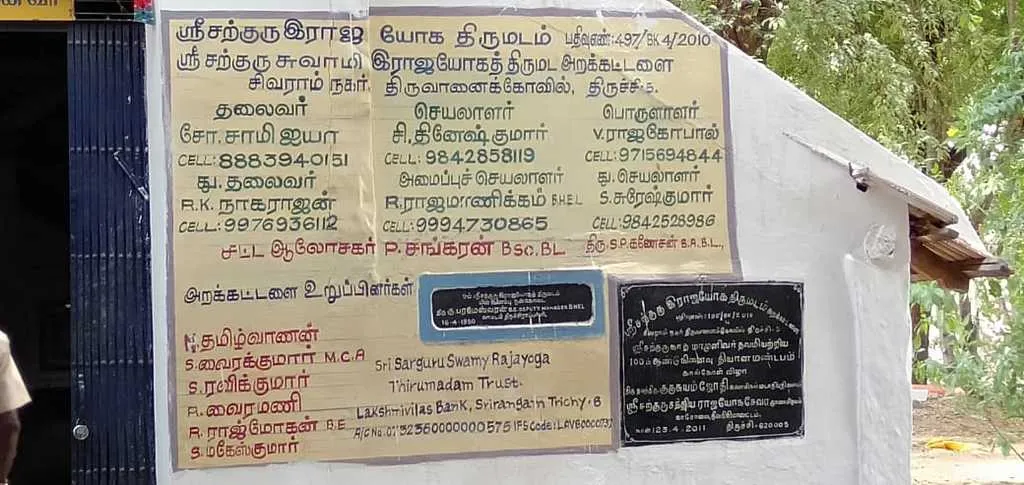 ஸ்ரீசற்குரு இராஜ யோக திருமடம் பதிவுஎண்:497/BK4/2010
ஸ்ரீசற்குரு சுவாமி இராஜயோகத் திருமட அறக்கட்டளை
சிவராம் நகர். திருவானைக்கோவில், திருச்சி-5.
தலைவர் செயலாளர் பொருளாளர்
சோ.சாமி ஐயா சி.தினேஷ்குமார் V.ராஜகோபால்
CELL: 8883940151 CELL: 9842858119 CELL:9715694844
து.தலைவர் அமைப்புச்செயலாளர் து.செயலாளர்
R.K. நாகராஜன் R.ராஜமாணிக்கம் BHEL S.சுரேஷ்குமார்
CELL:9976936112 CELL:9994730865 CELL:9842528986
சட்ட ஆலோசகர் P.சங்கரன் BSC.BL திரு S.P.கணேசன் B.A.B.L.,
அறக்கட்டளை உறுப்பினர்கள்
N.தமிழ்வாணன்
S.வைரக்குமார் M.C.A
S.ரவிக்குமார்
A.வைரமணி
R.ராஜ்மோகன் B.E
S.மகேஸ்குமார்
ஓம் ஸ்ரீசற்குரு இராஜயோகத் திருமடம்
மின் இணைப்பு நன்கொடை
திரு கு.பரமேஸ்வரன் B.E DEPUTY MANAGER BHEL
16-4-1990
Sri Sarguru Swamy Rajayoga
Thirumadam Trust.
Lakshmivilas Bank, Srirangam Trichy.6
A/C No. IFS Code:
ஸ்ரீசற்குரு இராஜயோக திருமடம்
சிவராம் நகர் திருவானைக்கோவில் திருச்சி-5
100ம் ஆண்டு நினைவு தியான மண்டபம்
கால்கோள் விழா
நாள்:23.4.2011 திருச்சி-620005